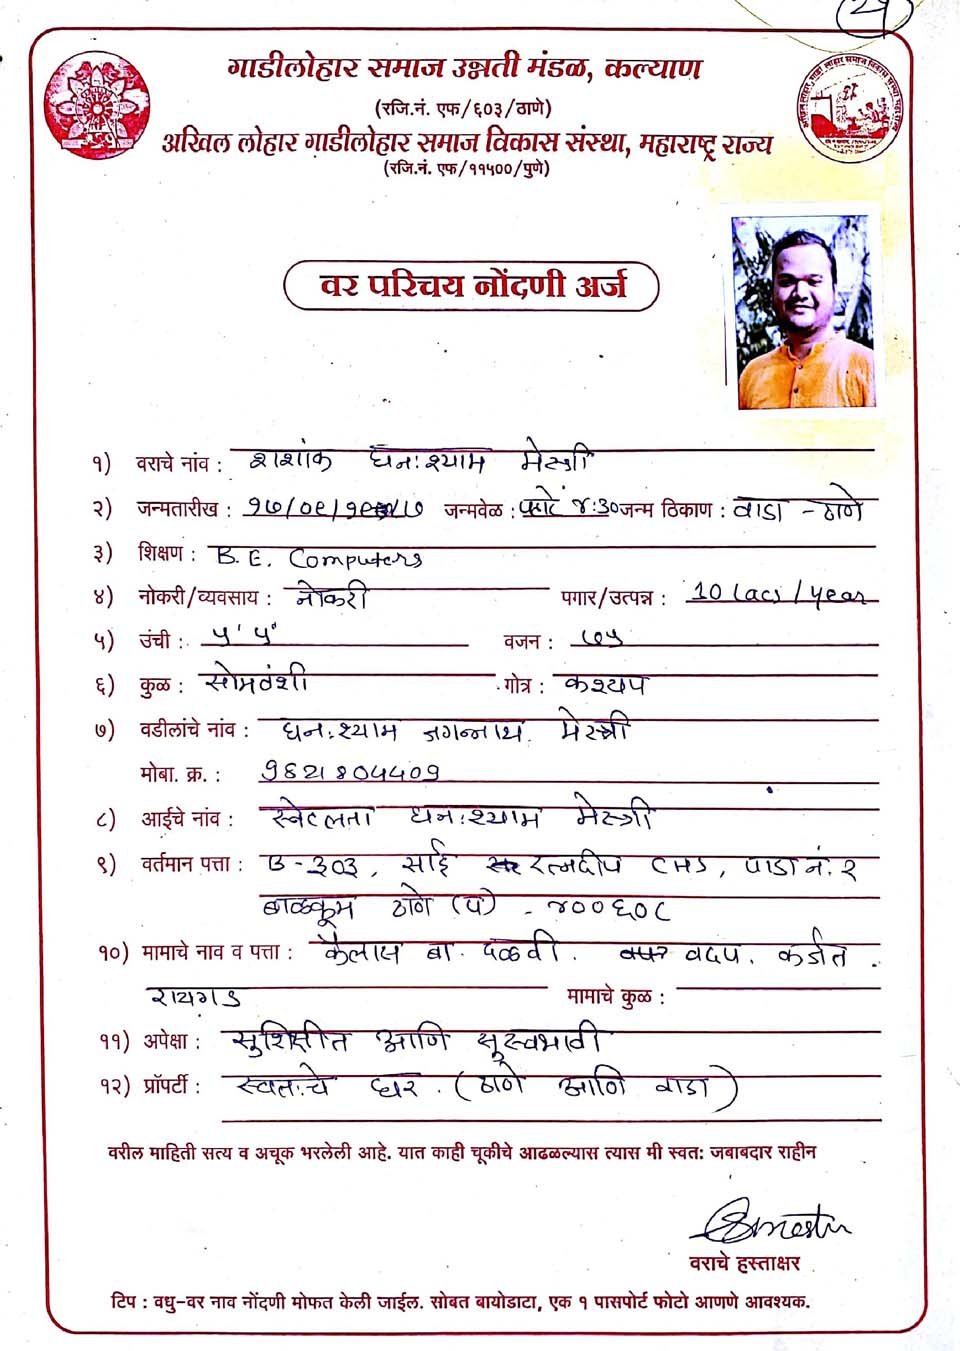 २१
गाडीलोहार समाज उन्नती मंडळ, कल्याण
(रजि.नं. एफ/६०३/ठाणे)
अखिल लोहार गाडीलोहार समाज विकास संस्था, महाराष्ट्र राज्य
(रजि.नं. एफ/११५००/पुणे)
वर परिचय नोंदणी अर्ज
१) वराचे नांव : शशांक घनःश्याम मेस्त्री
२) जन्मतारीख : १७/०९/ जन्मवेळ : ४:३० जन्म ठिकाण : वाडा - ठाणे
३) शिक्षण : B.E. Computers
४) नोकरी/व्यवसाय : नोकरी पगार/उत्पन्न : 10 lacs / year
५) उंची : ५' ५" वजन : ७५
६) कुळ : सोमवंशी गोत्र : कश्यप
७) वडीलांचे नांव : घनःश्याम जगन्नाथ मेस्त्री
मोबा. क्र. :
८) आईचे नांव : स्नेहलता घनःश्याम मेस्त्री
९) वर्तमान पत्ता : B-३०३, साई रत्नदीप CHS, पाडा नं. २
बाळकूम ठाणे (प) - ४००६०८
१०) मामाचे नाव व पत्ता : कैलास बा. दळवी. वदप. कर्जत.
रायगड मामाचे कुळ :
११) अपेक्षा : सुशिक्षीत आणि सुस्वभावी
१२) प्रॉपर्टी : स्वतःचे घर. (ठाणे आणि वाडा)
वरील माहिती सत्य व अचूक भरलेली आहे. यात काही चूकीचे आढळल्यास त्यास मी स्वत: जबाबदार राहीन
वराचे हस्ताक्षर
टिप : वधु-वर नाव नोंदणी मोफत केली जाईल. सोबत बायोडाटा, एक १ पासपोर्ट फोटो आणणे आवश्यक.